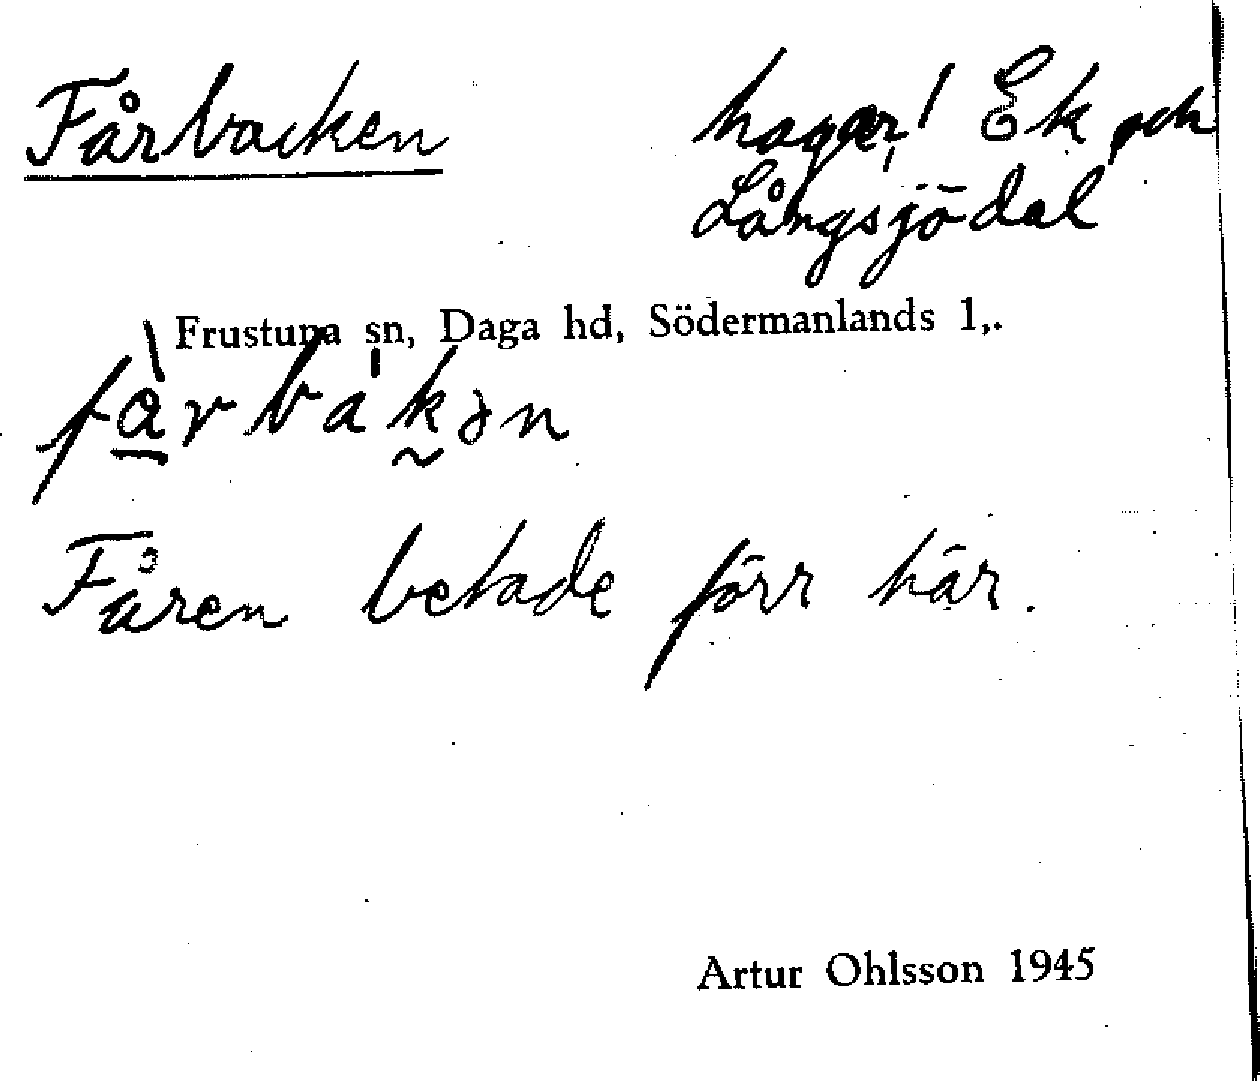 Fårbacken
hagar! Ek och
Långsjödal
Frustuna sn, Daga hd, Södermanlands l,.
fàrbákən
Fåren betade förr här.
Artur Ohlsson 1945